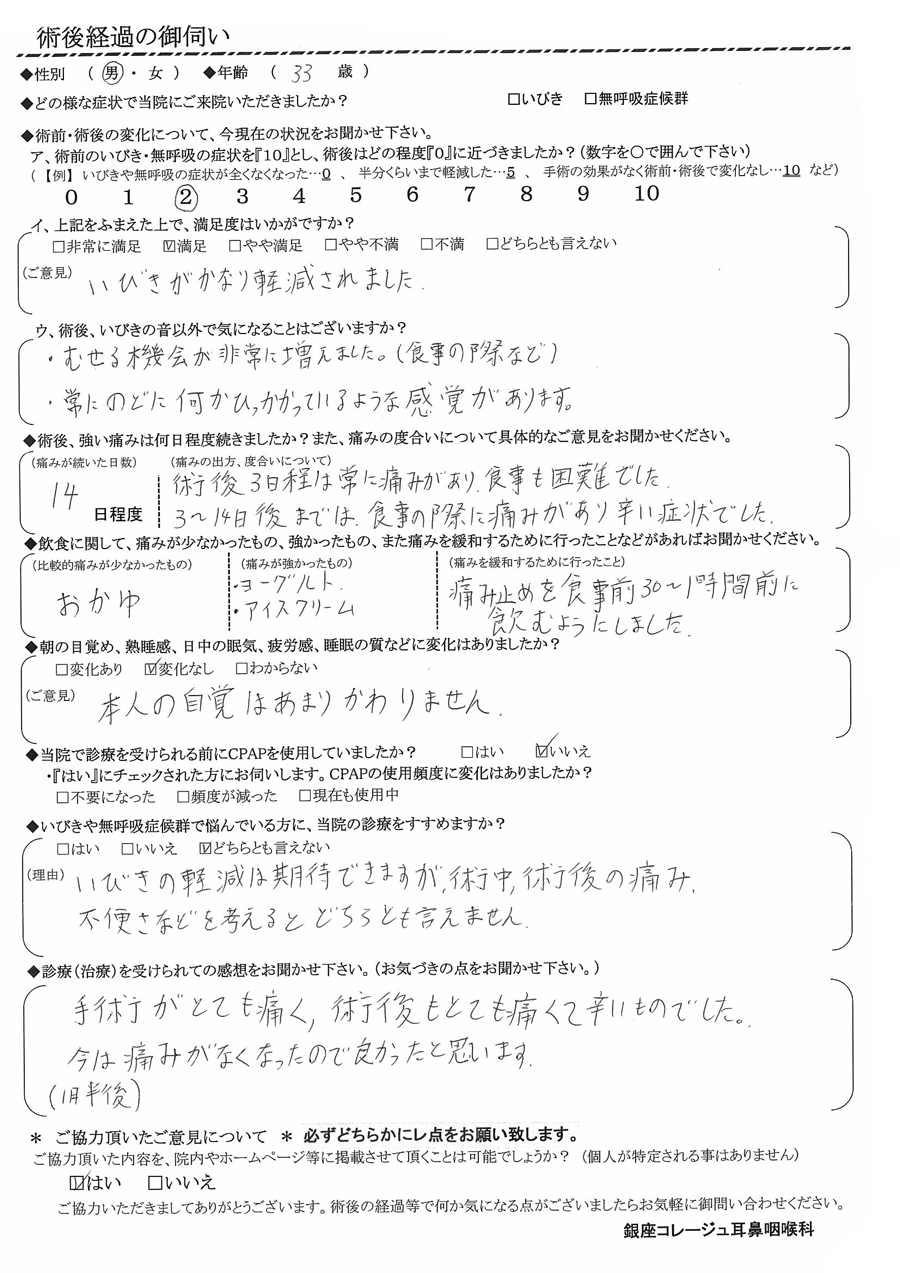 術後経過の御伺い
◆性別 （ 男 ・ 女 ） ◆年齢 （ 33 歳 ）
◆どの様な症状で当院にご来院いただきましたか？ □いびき □無呼吸症候群
◆術前・術後の変化について、今現在の状況をお聞かせ下さい。
ア、術前のいびき・無呼吸の症状を『10』とし、術後はどの程度『0』に近づきましたか？（数字を○で囲んで下さい）
（ 【例】 いびきや無呼吸の症状が全くなくなった…0 、 半分くらいまで軽減した…5 、 手術の効果がなく術前・術後で変化なし…10 など）
0 1 2 3 4 5 6 7 8 9 10
イ、上記をふまえた上で、満足度はいかがですか？
□非常に満足 ☑満足 □やや満足 □やや不満 □不満 □どちらとも言えない
（ご意見） いびきがかなり軽減されました.
ウ、術後、いびきの音以外で気になることはございますか？
・むせる機会が非常に増えました。（食事の際など）
・常にのどに何かひっかかっているような感覚があります。
◆術後、強い痛みは何日程度続きましたか？また、痛みの度合いについて具体的なご意見をお聞かせください。
（痛みが続いた日数） （痛みの出方、度合いについて）
14 日程度
術後3日程は常に痛みがあり.食事も困難でした.
3〜14日後までは.食事の際に痛みがあり辛い症状でした.
◆飲食に関して、痛みが少なかったもの、強かったもの、また痛みを緩和するために行ったことなどがあればお聞かせください。
（比較的痛みが少なかったもの） （痛みが強かったもの） （痛みを緩和するために行ったこと）
おかゆ
・ヨーグルト.
・アイスクリーム
痛み止めを食事前30〜1時間前に
飲むようにしました.
◆朝の目覚め、熟睡感、日中の眠気、疲労感、睡眠の質などに変化はありましたか？
□変化あり ☑変化なし □わからない
（ご意見） 本人の自覚はあまりかわりません.
◆当院で診療を受けられる前にCPAPを使用していましたか？ □はい ☑いいえ
・『はい』にチェックされた方にお伺いします。CPAPの使用頻度に変化はありましたか？
□不要になった □頻度が減った □現在も使用中
◆いびきや無呼吸症候群で悩んでいる方に、当院の診療をすすめますか？
□はい □いいえ ☑どちらとも言えない
（理由） いびきの軽減は期待できますが,術中,術後の痛み.
不便さなどを考えるとどちらとも言えません.
◆診療（治療）を受けられての感想をお聞かせ下さい。（お気づきの点をお聞かせ下さい。）
手術がとても痛く,術後もとても痛くて辛いものでした。
今は痛みがなくなったので良かったと思います.
（1月半後）
＊ ご協力頂いたご意見について ＊ 必ずどちらかにレ点をお願い致します。
ご協力頂いた内容を、院内やホームページ等に掲載させて頂くことは可能でしょうか？ （個人が特定される事はありません）
☑はい □いいえ
ご協力いただきましてありがとうございます。術後の経過等で何か気になる点がございましたらお気軽に御問い合わせください。
銀座コレージュ耳鼻咽喉科